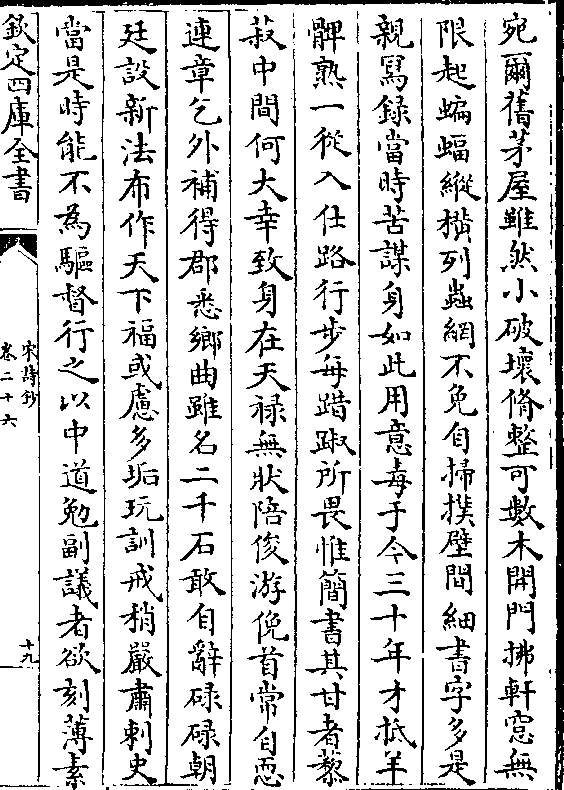 宛爾舊茅屋雖然小破壞脩整可數木開門拂軒窓無
限起蝙蝠縱橫列蟲網不免自掃撲壁間細書字多是
親寫録當時苦謀身如此用意毒于今三十年才柢羊
髀熟一從入仕路行步每踖踧所畏惟簡書其甘者藜
菽中間何大幸致身在天禄無狀陪俊游俛首常自恧
連章乞外補得郡悉鄉曲雖名二千石敢自辭碌碌朝
廷設新法布作天下福或慮多垢玩訓戒稍嚴肅刺史
當是時能不為驅督行之以中道勉副議者欲刻薄素
欽定四庫全書
宋詩鈔
卷二十六
十九